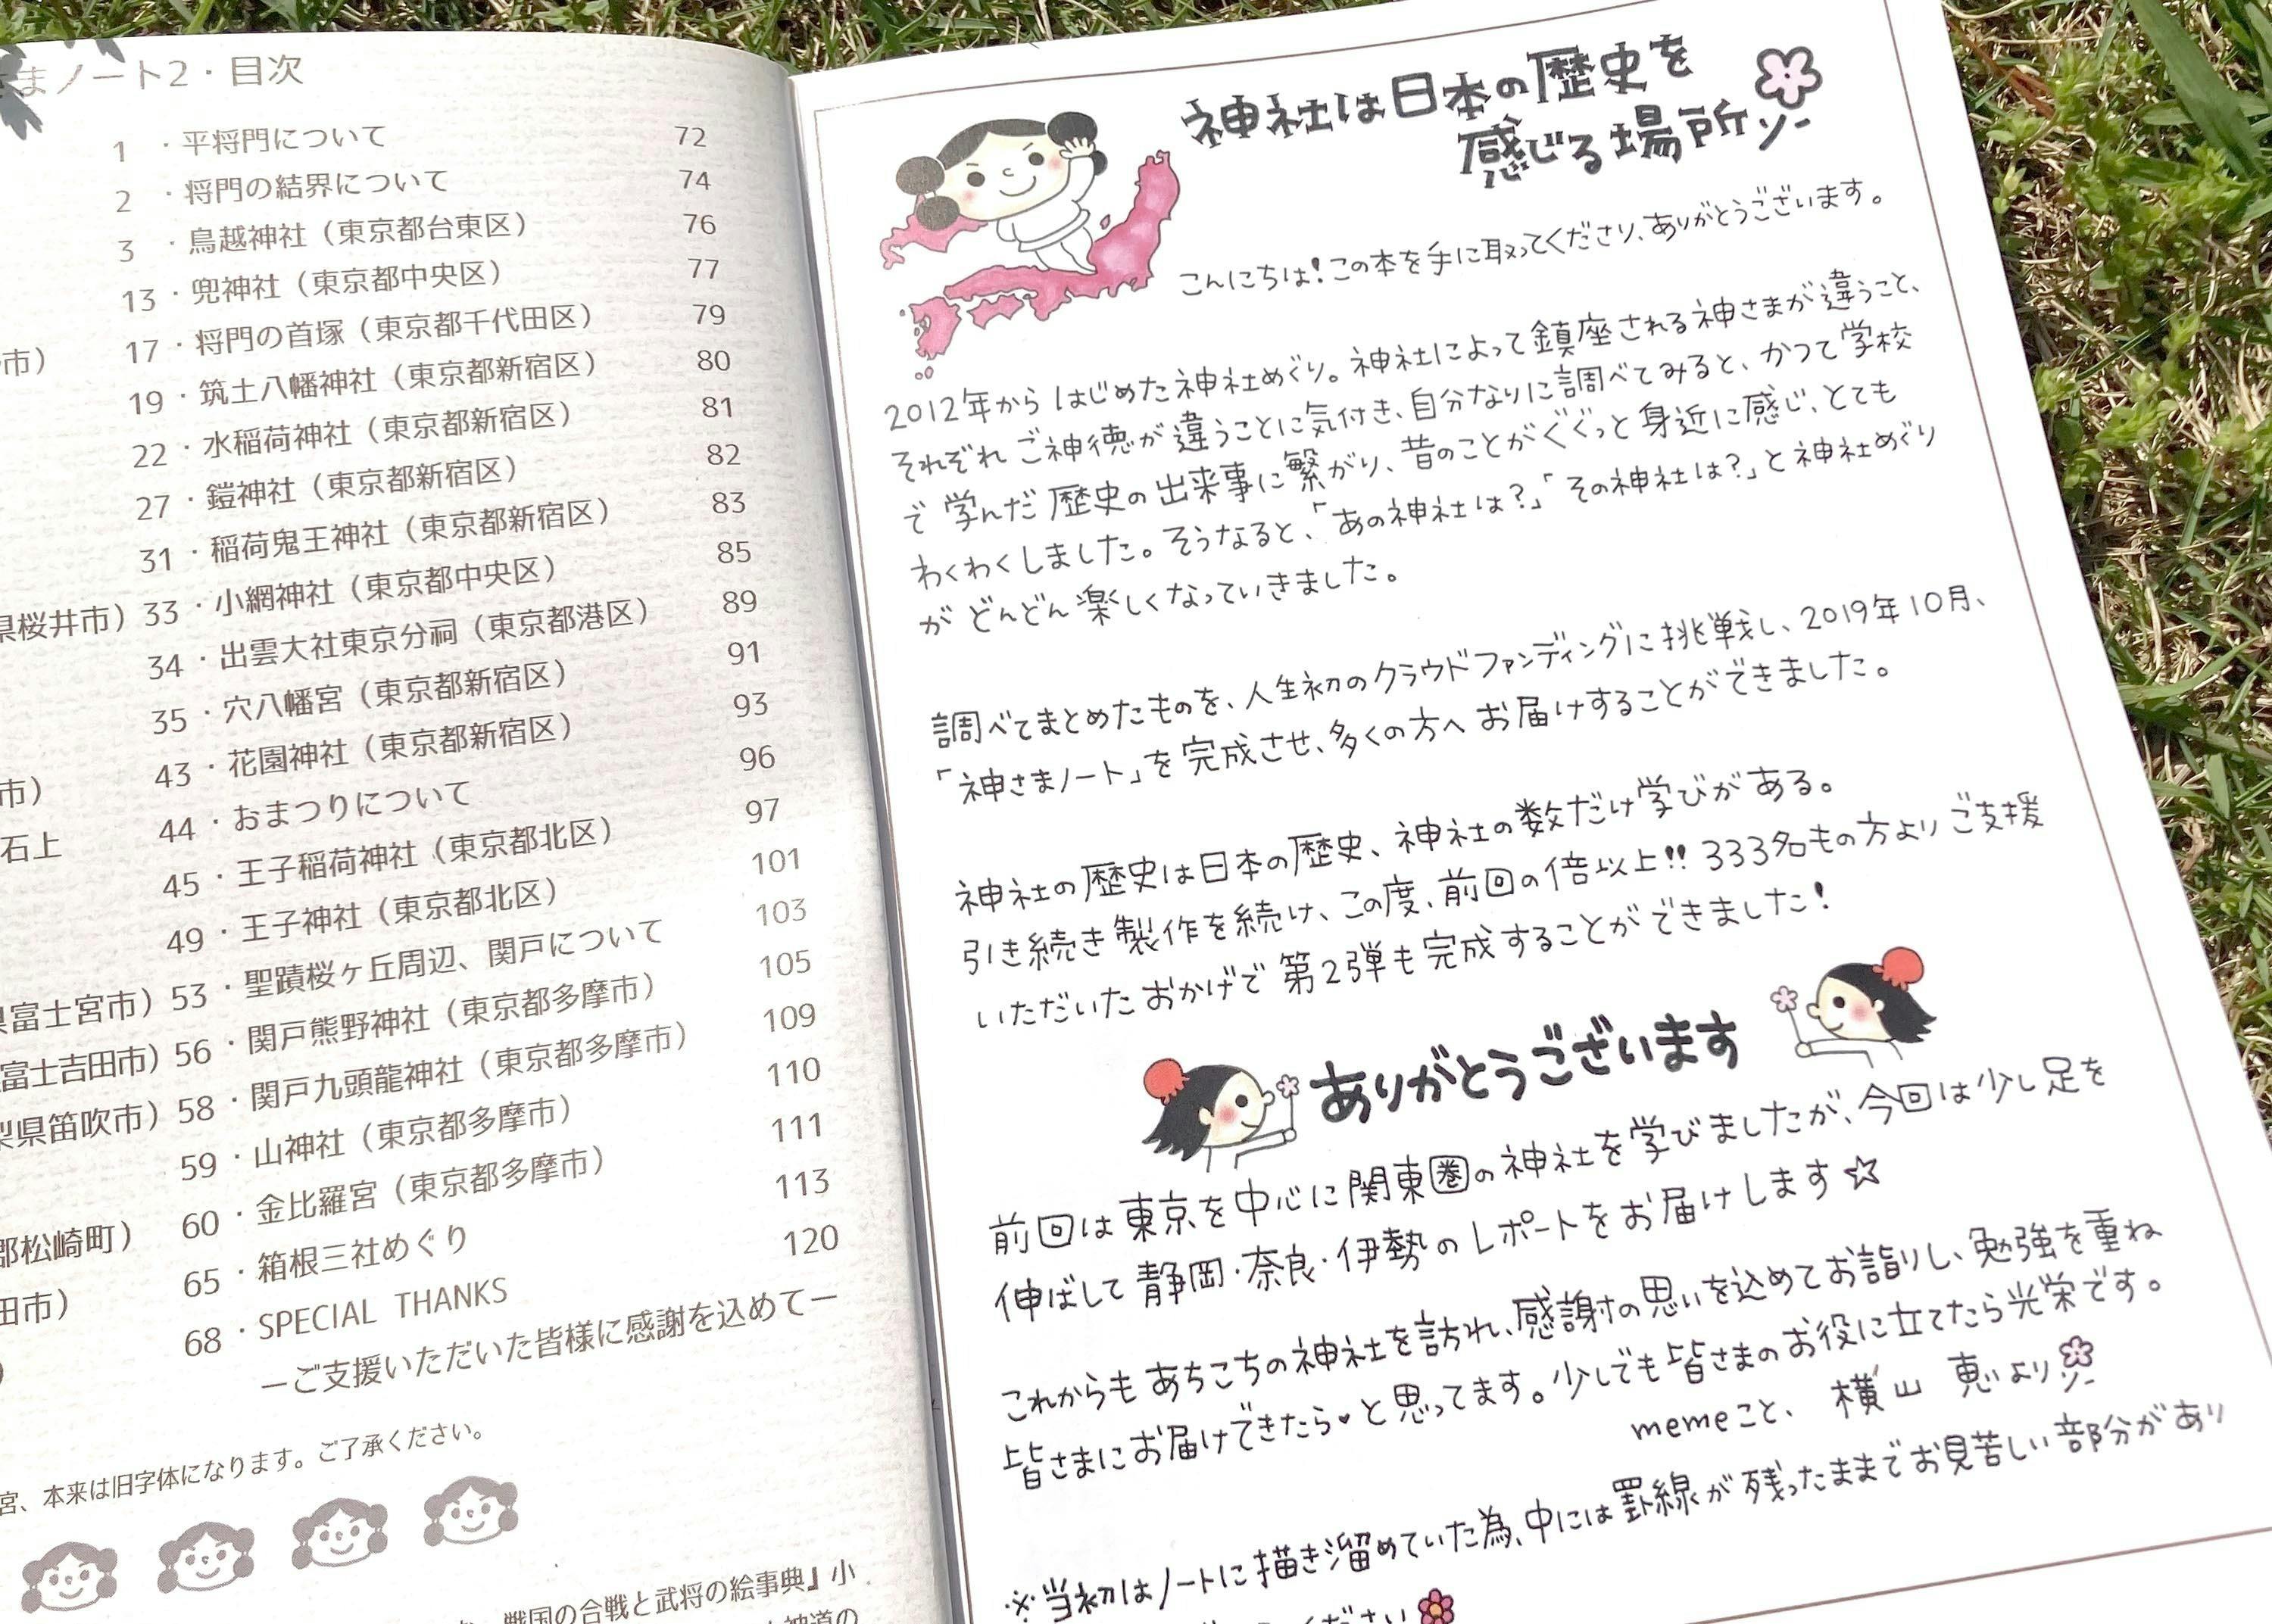 まノート2・目次
1
2
3
13
市） 17
19
22
27
31
県桜井市）33
34
35
市） 43
石上 44
45
49
県富士宮市）53
富士吉田市）56
梨県笛吹市）58
59
郡松崎町） 60
田市） 65
68
・平将門について 72
・将門の結界について 74
・鳥越神社（東京都台東区） 76
・兜神社（東京都中央区） 77
・将門の首塚（東京都千代田区） 79
・筑土八幡神社（東京都新宿区） 80
・水稲荷神社（東京都新宿区） 81
・鎧神社（東京都新宿区） 82
・稲荷鬼王神社（東京都新宿区） 83
・小網神社（東京都中央区） 85
・出雲大社東京分祠（東京都港区） 89
・穴八幡宮（東京都新宿区） 91
・花園神社（東京都新宿区） 93
・おまつりについて 96
・王子稲荷神社（東京都北区） 97
・王子神社（東京都北区） 101
・聖蹟桜ヶ丘周辺、関戸について 103
・関戸熊野神社（東京都多摩市） 105
・関戸九頭龍神社（東京都多摩市） 109
・山神社（東京都多摩市） 110
・金比羅宮（東京都多摩市） 111
・箱根三社めぐり 113
・SPECIAL THANKS 120
ーご支援いただいた皆様に感謝を込めてー
宮、本来は旧字体になります。ご了承ください。
戦国の合戦と武将の絵事典』小
神道の
神社は日本の歴史を
感じる場所ソー
こんにちは!この本を手に取ってくださり、ありがとうございます。
2012年からはじめた神社めぐり。神社によって鎮座される神さまが違うこと、
それぞれご神徳が違うことに気付き、自分なりに調べてみると、かつて学校
で学んだ歴史の出来事に繋がり、昔のことがぐぐっと身近に感じ、とても
わくわくしました。そうなると、「あの神社は?」「その神社は?」と神社めぐり
がどんどん楽しくなっていきました。
調べてまとめたものを、人生初のクラウドファンディングに挑戦し、2019年10月、
「神さまノート」を完成させ、多くの方へお届けすることができました。
神社の歴史は日本の歴史、神社の数だけ学びがある。
引き続き製作を続け、この度、前回の倍以上!!333名もの方よりご支援
いただいたおかげで第2弾も完成することができました!
ありがとうございます
前回は東京を中心に関東圏の神社を学びましたが、今回は少し足を
伸ばして静岡・奈良・伊勢のレポートをお届けします☆
これからもあちこちの神社を訪れ、感謝の思いを込めてお詣りし、勉強を重ね
皆さまにお届けできたら♥と思ってます。少しでも皆さまのお役に立てたら光栄です。
memeこと、横山 恵より
※当初はノートに描き溜めていた為、中には罫線が残ったままでお見苦しい部分があり
ください